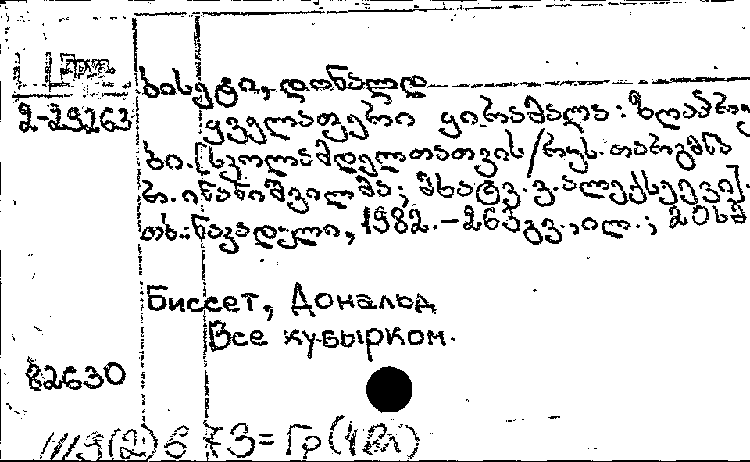 Груз.
2-29263
ბისეტი, დონალდ
ყველაფერი ყირამალა: ზღაპრე
ბი. [სკოლამდელთათვის/რუს. თარგმნა
ნ. ინანიშვილმა; მხატვ. ვ. ალექსეევი].
თბ.: ნაკადული, 1982. - 26 გვ., ილ.; 20სმ
Биссет, Дональд
Все кувырком.
82630
9(2) 6 73 = Гр(4Вл)